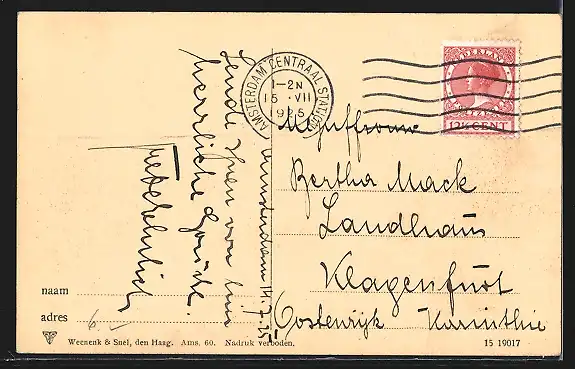 Amsterdam 14.7.25
Sende Ihnen von hier
herrliche Grüße.
AMSTERDAM CENTRAAL STATION
1-2N
15 VII
1925
NEDERLAND
12½ CENT
Mejuffrouw
Bertha Mack
Landhaus
Klagenfurt
Oostenrijk Karinthie
naam
adres
6
Weenenk & Snel, den Haag. Ams. 60. Nadruk verboden.
15 19017